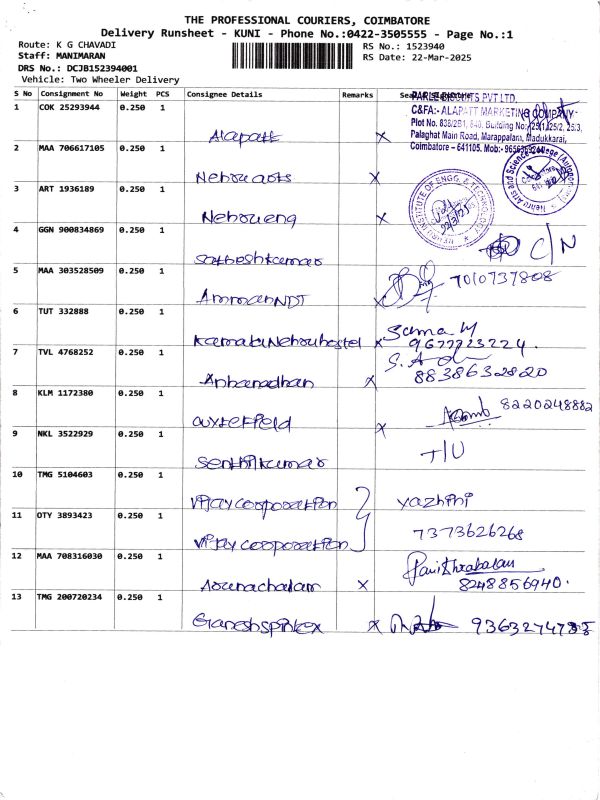 THE PROFESSIONAL COURIERS, COIMBATORE
Delivery Runsheet - KUNI - Phone No.:0422-3505555 - Page No.:1
Route: K G CHAVADI
RS No.: 1523940
Staff: MANIMARAN
RS Date: 22-Mar-2025
DRS No.: DCJB152394001
Vehicle: Two Wheeler Delivery
S No Consignment No Weight PCS Consignee Details Remarks
PARLE BISCUITS PVT LTD.
C&FA:- ALAPATT MARKETING COMPANY
Plot No. 838/2B1, 840, Building No: 25/1, 25/2, 25/3,
Palaghat Main Road, Marappalam, Madukkarai,
Coimbatore – 641105. Mob:-
1 COK 25293944 0.250 1 Alapatt x
2 MAA 706617105 0.250 1 Nehru arts x
Nehru Arts and Science College
3 ART 1936189 0.250 1 Nehru eng x
NEHRU INSTITUTE OF ENGG. & TECHNOLOGY
4 GGN 900834869 0.250 1 Satheshkumar C/N
5 MAA 303528509 0.250 1 AmmanNDT x 7010737808
6 TUT 332888 0.250 1 Nehru hostel x
9677723224.
7 TVL 4768252 0.250 1 x
8838632820
8 KLM 1172380 0.250 1 x 8220248882
9 NKL 3522929 0.250 1 Senthilkumar T/U
10 TMG 5104603 0.250 1 Vijay corporation yazhini
11 OTY 3893423 0.250 1 Vijay corporation 7373626268
12 MAA 708316030 0.250 1 Arunachalam x
8248856940.
13 TMG 200720234 0.250 1 Ganesh spintex x